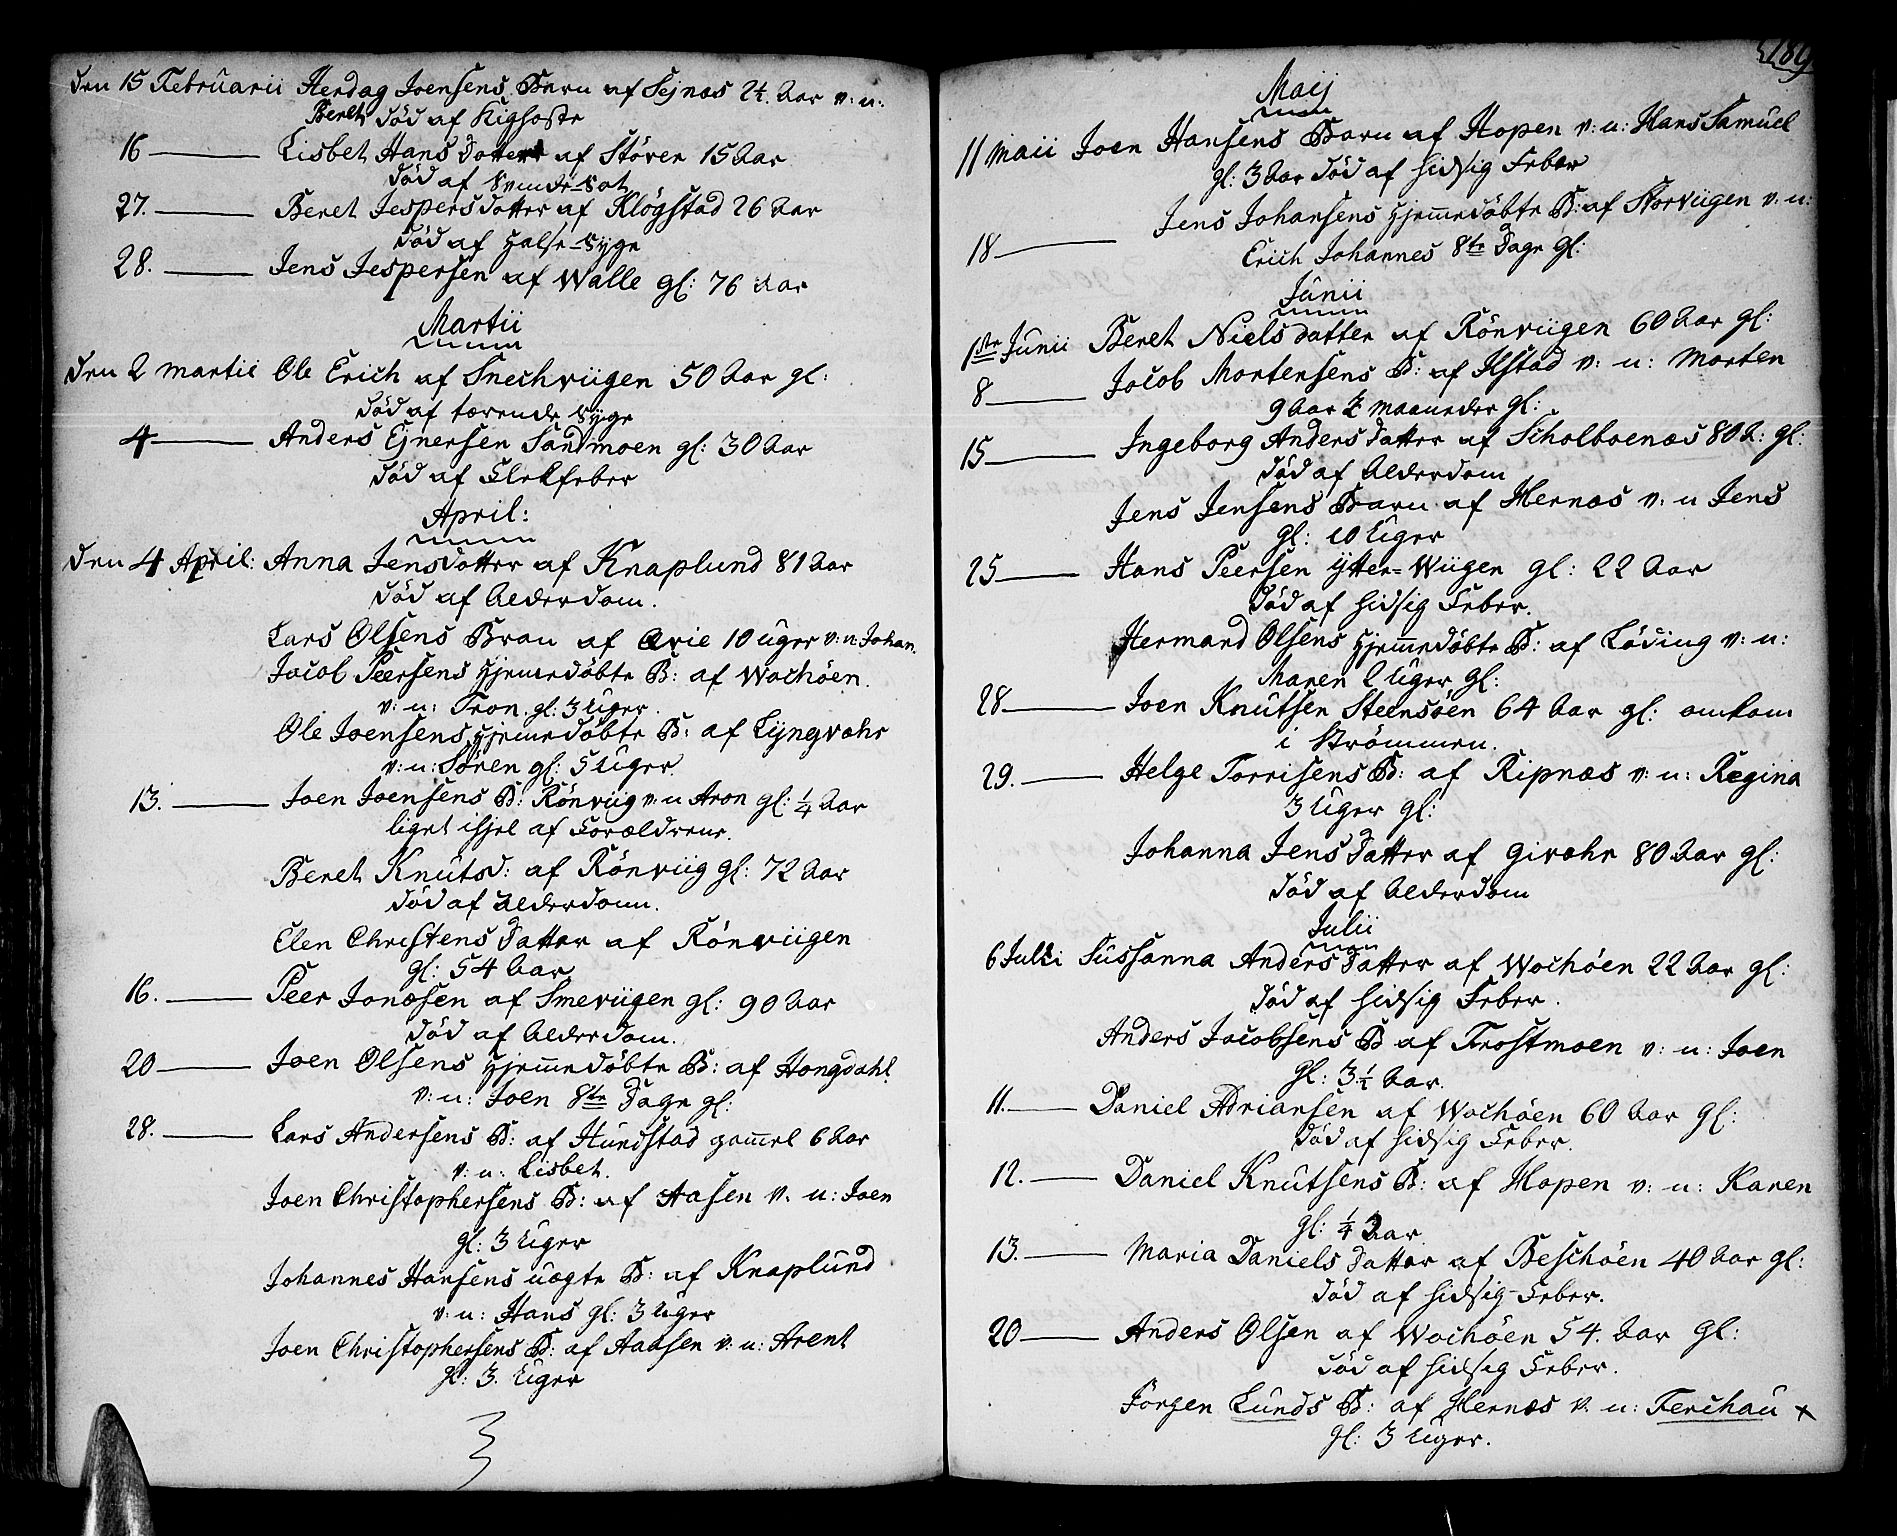 den 15 Februarii Herdag Joensens Barn af Sejnæs 2½ Aar v: n:
Beret død af Kighoste
16 Lisbet Hans Datter af Støver 15 Aar
død af
27. Beret Jespers Datter af Kløgstad 26 Aar
død af Halse-Syge
28. Jens Jespersen af Walle gl: 76 Aar
Martii
den 2 martii Ole Erich af Snechviigen 50 Aar gl:
død af tærende Syge
4 Anders Ejnersen Sandmoen gl: 30 Aar
død af Flekfeber
April:
den 4 April: Anna Jensdatter af Knaplund 81 Aar
død af Alderdom.
Lars Olsens Bran af Qvie 10 uger v: n: Johan.
Jacob Peersens Hjemmedøbte B: af Wochöen.
v: n: Tron. gl: 3 Uger.
Ole Joensens Hjemmedøbte B: af Lyngvæhr
v: n: Søren gl: 5 Uger.
13. Joen Joensens B: Rönviig v: n Aron gl: ¼ Aar
liget ihjel af Forældrene.
Beret Knutsd: af Rönviig gl: 72 Aar
død af Alderdom.
Elen Christens Datter af Rönviigen
gl: 54 Aar
16. Peer Jonæsen af Smeviigen gl: 90 Aar
død af Alderdom.
20 Joen Olsens Hjemmedøbte B: af Hongdahl
v: n: Joen 8te Dage gl:
28. Lars Andersens B: af Hundstad gammel 6 Aar
v: n: Lisbet.
Joen Christophersens B: af Aasen v. n: Joen
gl: 3 Uger
Johannes Hansens uægte B: af Knaplund
v: n: Hans gl: 3 Uger
Joen Christophersens B: af Aaasen v: n: Arent
gl: 3. Uger
189
Maij
11 maii Joen Hansens Barn af Hopen v: n: Hans Samuel
gl: 3 Aar død af hidsig Feber
18 Jens Johansens Hjemmedøbte B: af Storviigen v: n:
Erich Johannes 8te Dage gl:
Junii
1ste Junii Beret Niels datter af Rönviigen 60 Aar gl:
8 Jacob Mortensens B: af Ilstad v: n: Morten
9 Aar maaneder gl:
15 Ingeborg Anders Datter af Scholboenæs 80 A: gl:
død af Alderdom
Jens Jensens Barn af Hernæs v: n Jens
gl: 10 Uger
25 Hans Peersen ytter=Wiigen gl: 22 Aar
død af hidsig Feber.
Hermand Olsens Hjemmedøbte B: af Løding v: n:
Maren 2 Uger gl:
28 Joen Knutsen Steensöen 64 Aar gl: omkom
i Strömmen.
29. Helge Torrisens B: af Ripnæs v: n: Regina
3 Uger gl:
Johanna Jens Datter af Givæhr 80 Aar gl:
død af Alderdom
Julii
6 Julii Sussanna Anders Datter af Wochöen 22 Aar gl:
død af hidsig Feber.
Anders Jacobsens B af Trostmoen v: n: Joen
gl: 3½ Aar.
11. Daniel Adriansen af Wochöen 60 Aar gl:
død af hidsig Feber.
12. Daniel Knutsens B: af Hopen v: n: Karen
gl: ¼ Aar
13. Maria Daniels Datter af Beschöen 40 Aar gl:
død af hidsig-Feber.
20 Anders Olsen af Wochöen 54. Aar gl:
død af hidsig Feber.
Jörgen Lunds B: af Hernæs v. n: Ferchau x
gl: 3 Uger.